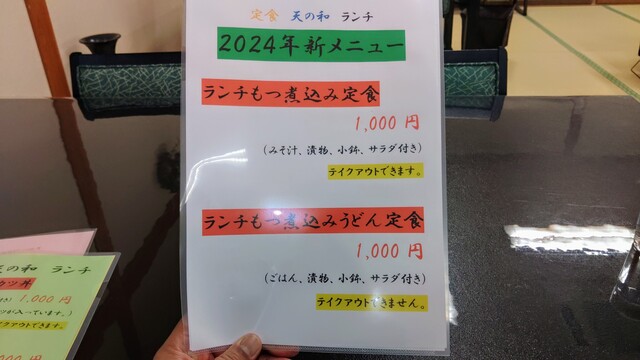 定食 天の和 ランチ
2024年新メニュー
ランチもつ煮込み定食
1,000 円
(みそ汁、漬物、小鉢、サラダ付き)
テイクアウトできます。
ランチもつ煮込みうどん定食
1,000 円
(ごはん、漬物、小鉢、サラダ付き)
テイクアウトできません。
天の和 ランチ
カツ丼
付き) 1,000 円
が入っています。)
イクアウトできます。
000 円